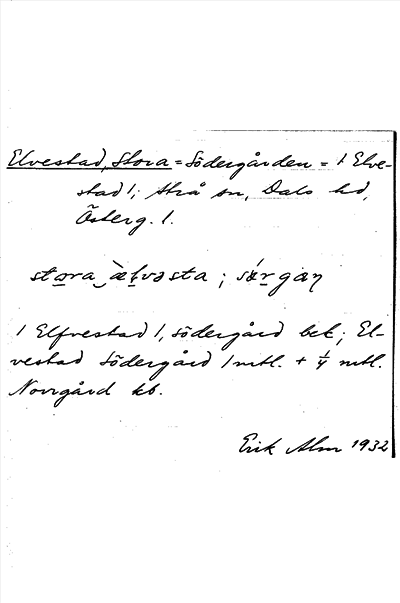 Elvestad, Stora = Södergården = 1 Elve-
stad 1; Strå sn, Dals hd,
Österg. l.
stora ; 
1 Elfvestad 1, södergård bet; El-
vestad Södergård 1 mtl. + 1/4 mtl.
Norrgård kb.
Erik Alm 1932